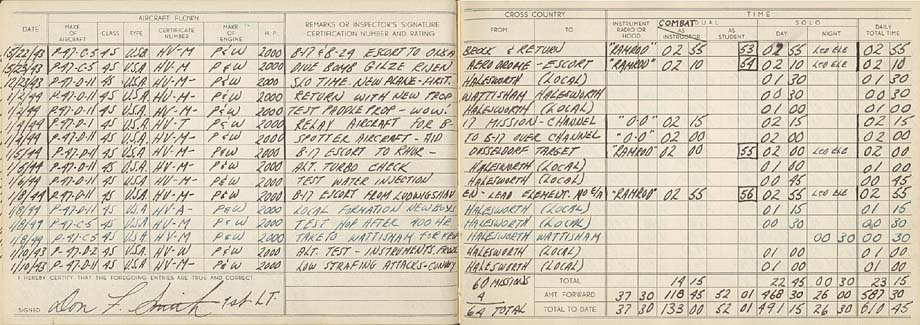 AIRCRAFT FLOWN
DATE MAKE OF AIRCRAFT CLASS TYPE CERTIFICATE NUMBER MAKE OF ENGINE H. P. REMARKS OR INSPECTOR'S SIGNATURE CERTIFICATION NUMBER AND RATING
CROSS COUNTRY TIME
FROM TO INSTRUMENT RADIO OR HOOD COMBAT DUAL AS INSTRUCTOR AS STUDENT SOLO DAY NIGHT DAILY TOTAL TIME
P-47-C-5 45 USA HV-M P&W 2000 B-17 & B-24 ESCORT TO & RETURN "RAMROD" 02 55 53 02 55 LEO ELE 02 55
P-47-C-5 45 U.S.A. HV-M P&W 2000 DIVE BOMB GILZE RIJEN AERODROME - ESCORT "RAMROD" 02 10 54 02 10 LEO ELE 02 10
P-47-D-11 45 U.S.A. HV-M- P&W 2000 S/O TIME NEW PLANE - FIRST. HALESWORTH (LOCAL) 01 30 01 30
P-47-D-11 45 U.S.A. HV-M- P&W 2000 RETURN WITH NEW PROP WATTISHAM HALESWORTH 00 30 00 30
P-47-D-11 45 U.S.A. HV-M- P&W 2000 TEST PADDLE PROP - WOW. HALESWORTH (LOCAL) 01 00 01 00
45 U.S.A. HV-T P&W 2000 RELAY AIRCRAFT FOR B- MISSION - CHANNEL "O-O" 02 15 02 15 02 15
P-47-D-11 45 U.S.A. HV-M- P&W 2000 SPOTTER AIRCRAFT - AID TO B-17 OVER CHANNEL "O-O" 02 00 02 00 02 00
1/5/44 P-47-D-11 45 U.S.A. HV-M- P&W 2000 B-17 ESCORT TO RHUR - DUSSELDORF TARGET "RAMROD" 02 00 55 02 00 LEO ELE 02 00
1/6/44 P-47-D-11 45 U.S.A. HV-M- P&W 2000 ALT. TURBO CHECK HALESWORTH (LOCAL) 01 00 01 00
1/6/44 P-47-D-11 45 U.S.A. HV-M- P&W 2000 TEST WATER INJECTION HALESWORTH (LOCAL) 00 45 00 45
P-47-D-11 45 U.S.A. HV-M- P&W 2000 B-17 ESCORT FROM - LEAD ELEMENT. "RAMROD" 02 55 56 02 55 LEO ELE 02 55
1/8/44 P-47-D-11 45 U.S.A. HV-A- P&W 2000 LOCAL FORMATION NEW BOYS HALESWORTH (LOCAL) 01 15 01 15
P-47-C-5 45 U.S.A. HV-M P&W 2000 TEST HOP AFTER 400 HR. HALESWORTH (LOCAL) 00 30 00 30
P-47-C-5 45 U.S.A. HV-M P&W 2000 WATTISHAM FOR HALESWORTH WATTISHAM 00 30 00 30
1/10/43 45 U.S.A. P&W 2000 ALT. TEST - INSTRUMENTS. HALESWORTH (LOCAL) 01 00 01 00
1/10/43 P-47-D-11 45 U.S.A. HV-M- P&W 2000 LOW STRAFING ATTACKS - HALESWORTH (LOCAL) 01 00 01 00
I HEREBY CERTIFY THAT THE FOREGOING ENTRIES ARE TRUE AND CORRECT.
SIGNED Don 1st LT.
60 MISSIONS TOTAL 14 15 22 45 00 30 23 15
4 AMT. FORWARD 37 30 118 45 52 01 468 30 26 00 587 30
64 TOTAL TOTAL TO DATE 37 30 133 00 52 01 491 15 26 30 610 45